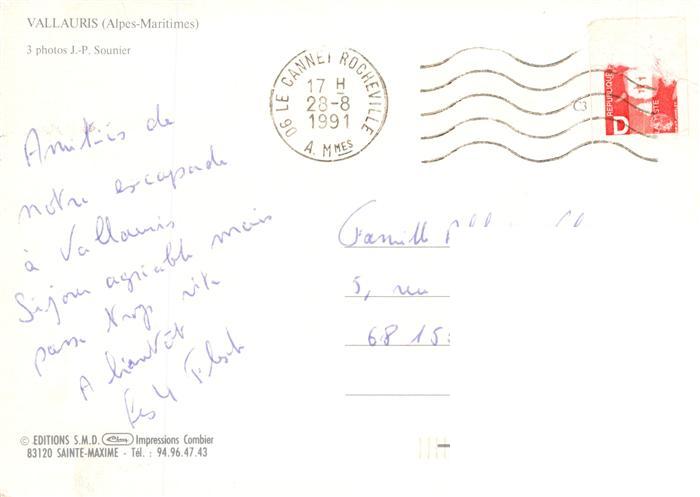 VALLAURIS (Alpes-Maritimes)
3 photos J.-P. Sounier
06 LE CANNET ROCHEVILLE
17 H
28-8
1991
A. MMES
C3
REPUBLIQUE
D
Amitiés de
notre escapade
à Vallauris
Séjour agréable mais
passe trop vite
A bientôt
Les 4
Famille
5, rue
68 15
© EDITIONS S.M.D. Impressions Combier
83120 SAINTE-MAXIME - Tél. : 94.96.47.43